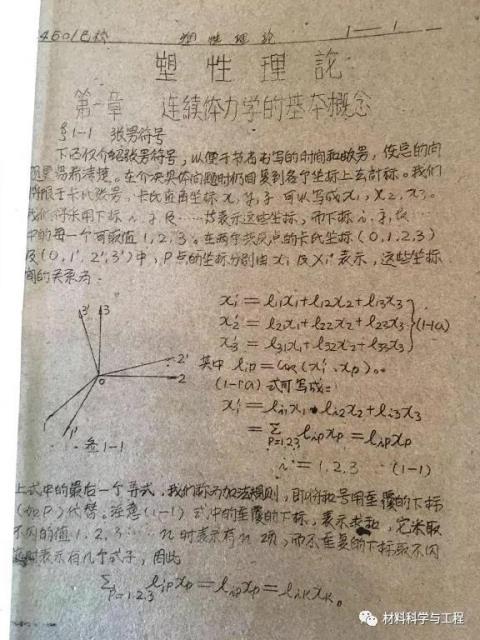 4501已校 塑性理论 1—1
塑性理論
第一章 连续体力学的基本概念
§1-1 张量符号
下面仅介绍张量符号，以便于节省书写的时间和
在个决具体问题时仍回复到各个坐标上去計标。我们
将限于卡氏张量。卡氏直角坐标 x, y, z 可以写成 x₁, x₂, x₃。
我们将采用下标 i、j、k……表示这些坐标，而下标 i、j、k…
中的每一个可取值 1, 2, 3。在两个共原点的卡氏坐标 (0,1,2,3)
及 (0,1′,2′,3′) 中，P点的坐标分别由 xᵢ 及 xᵢ′ 表示，这些坐标
间的关系为：
x₁′ = l₁₁x₁ + l₁₂x₂ + l₁₃x₃
x₂′ = l₂₁x₁ + l₂₂x₂ + l₂₃x₃ } (1-1a)
x₃′ = l₃₁x₁ + l₃₂x₂ + l₃₃x₃
3′ 3
2′
2
0
1 1′
1-1
其中 lᵢₚ = cos(xᵢ′, xₚ)。
(1-1a) 式可写成：
xᵢ′ = lᵢ₁x₁ + lᵢ₂x₂ + lᵢ₃x₃
= Σ lᵢₚxₚ = lᵢₚxₚ
P=1,2,3
i = 1, 2, 3 (1-1)
上式中的最后一个等式，我们称为加法规则，即将和号用重覆的下标
(如P) 代替。注意(1-1) 式中的重覆的下标，表示求和，它末取
不同的值 1, 2, 3 …… n 时表示有 n 项，而不重复的下标取不同
值时表示有几个式子，因此
Σ lᵢₚxₚ = lᵢₚxₚ = lᵢₖxₖ。
P=1,2,3
材料科学与工程